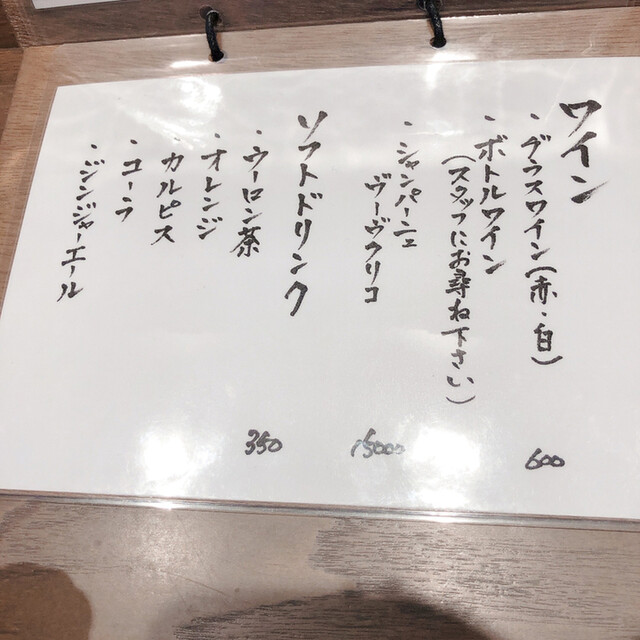 ワイン
・グラスワイン(赤・白) 600
・ボトルワイン
(スタッフにお尋ね下さい)
・シャンパーニュ
ヴーヴクリコ 15000
ソフトドリンク
・ウーロン茶 350
・オレンジ
・カルピス
・コーラ
・ジンジャーエール